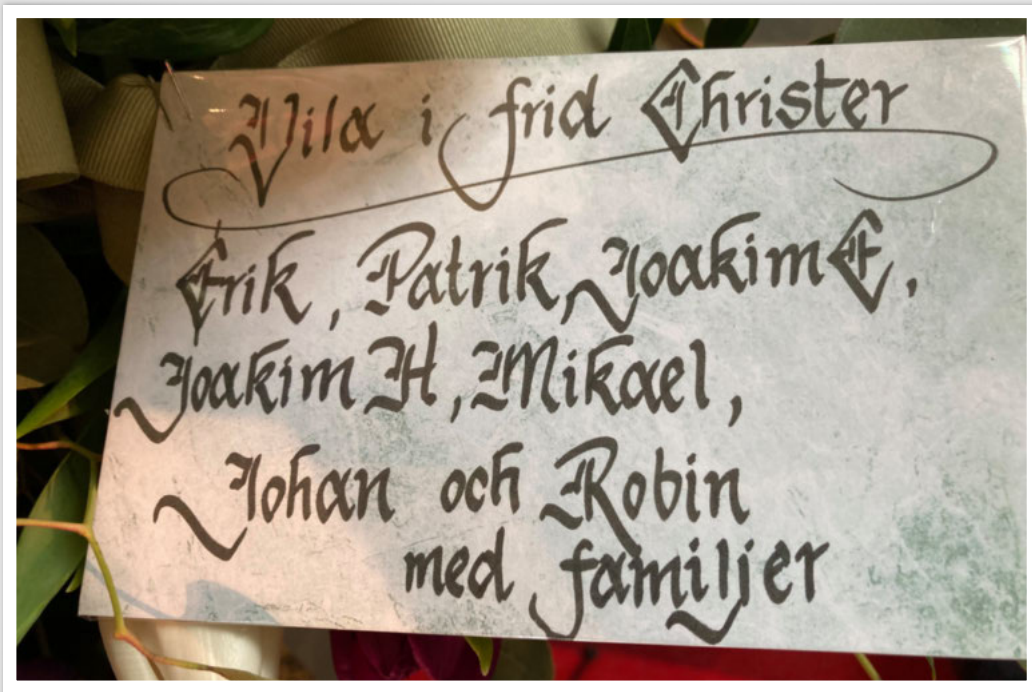 Vila i frid Christer
Erik, Patrik, Joakim E,
Joakim H, Mikael,
Johan och Robin
med familjer